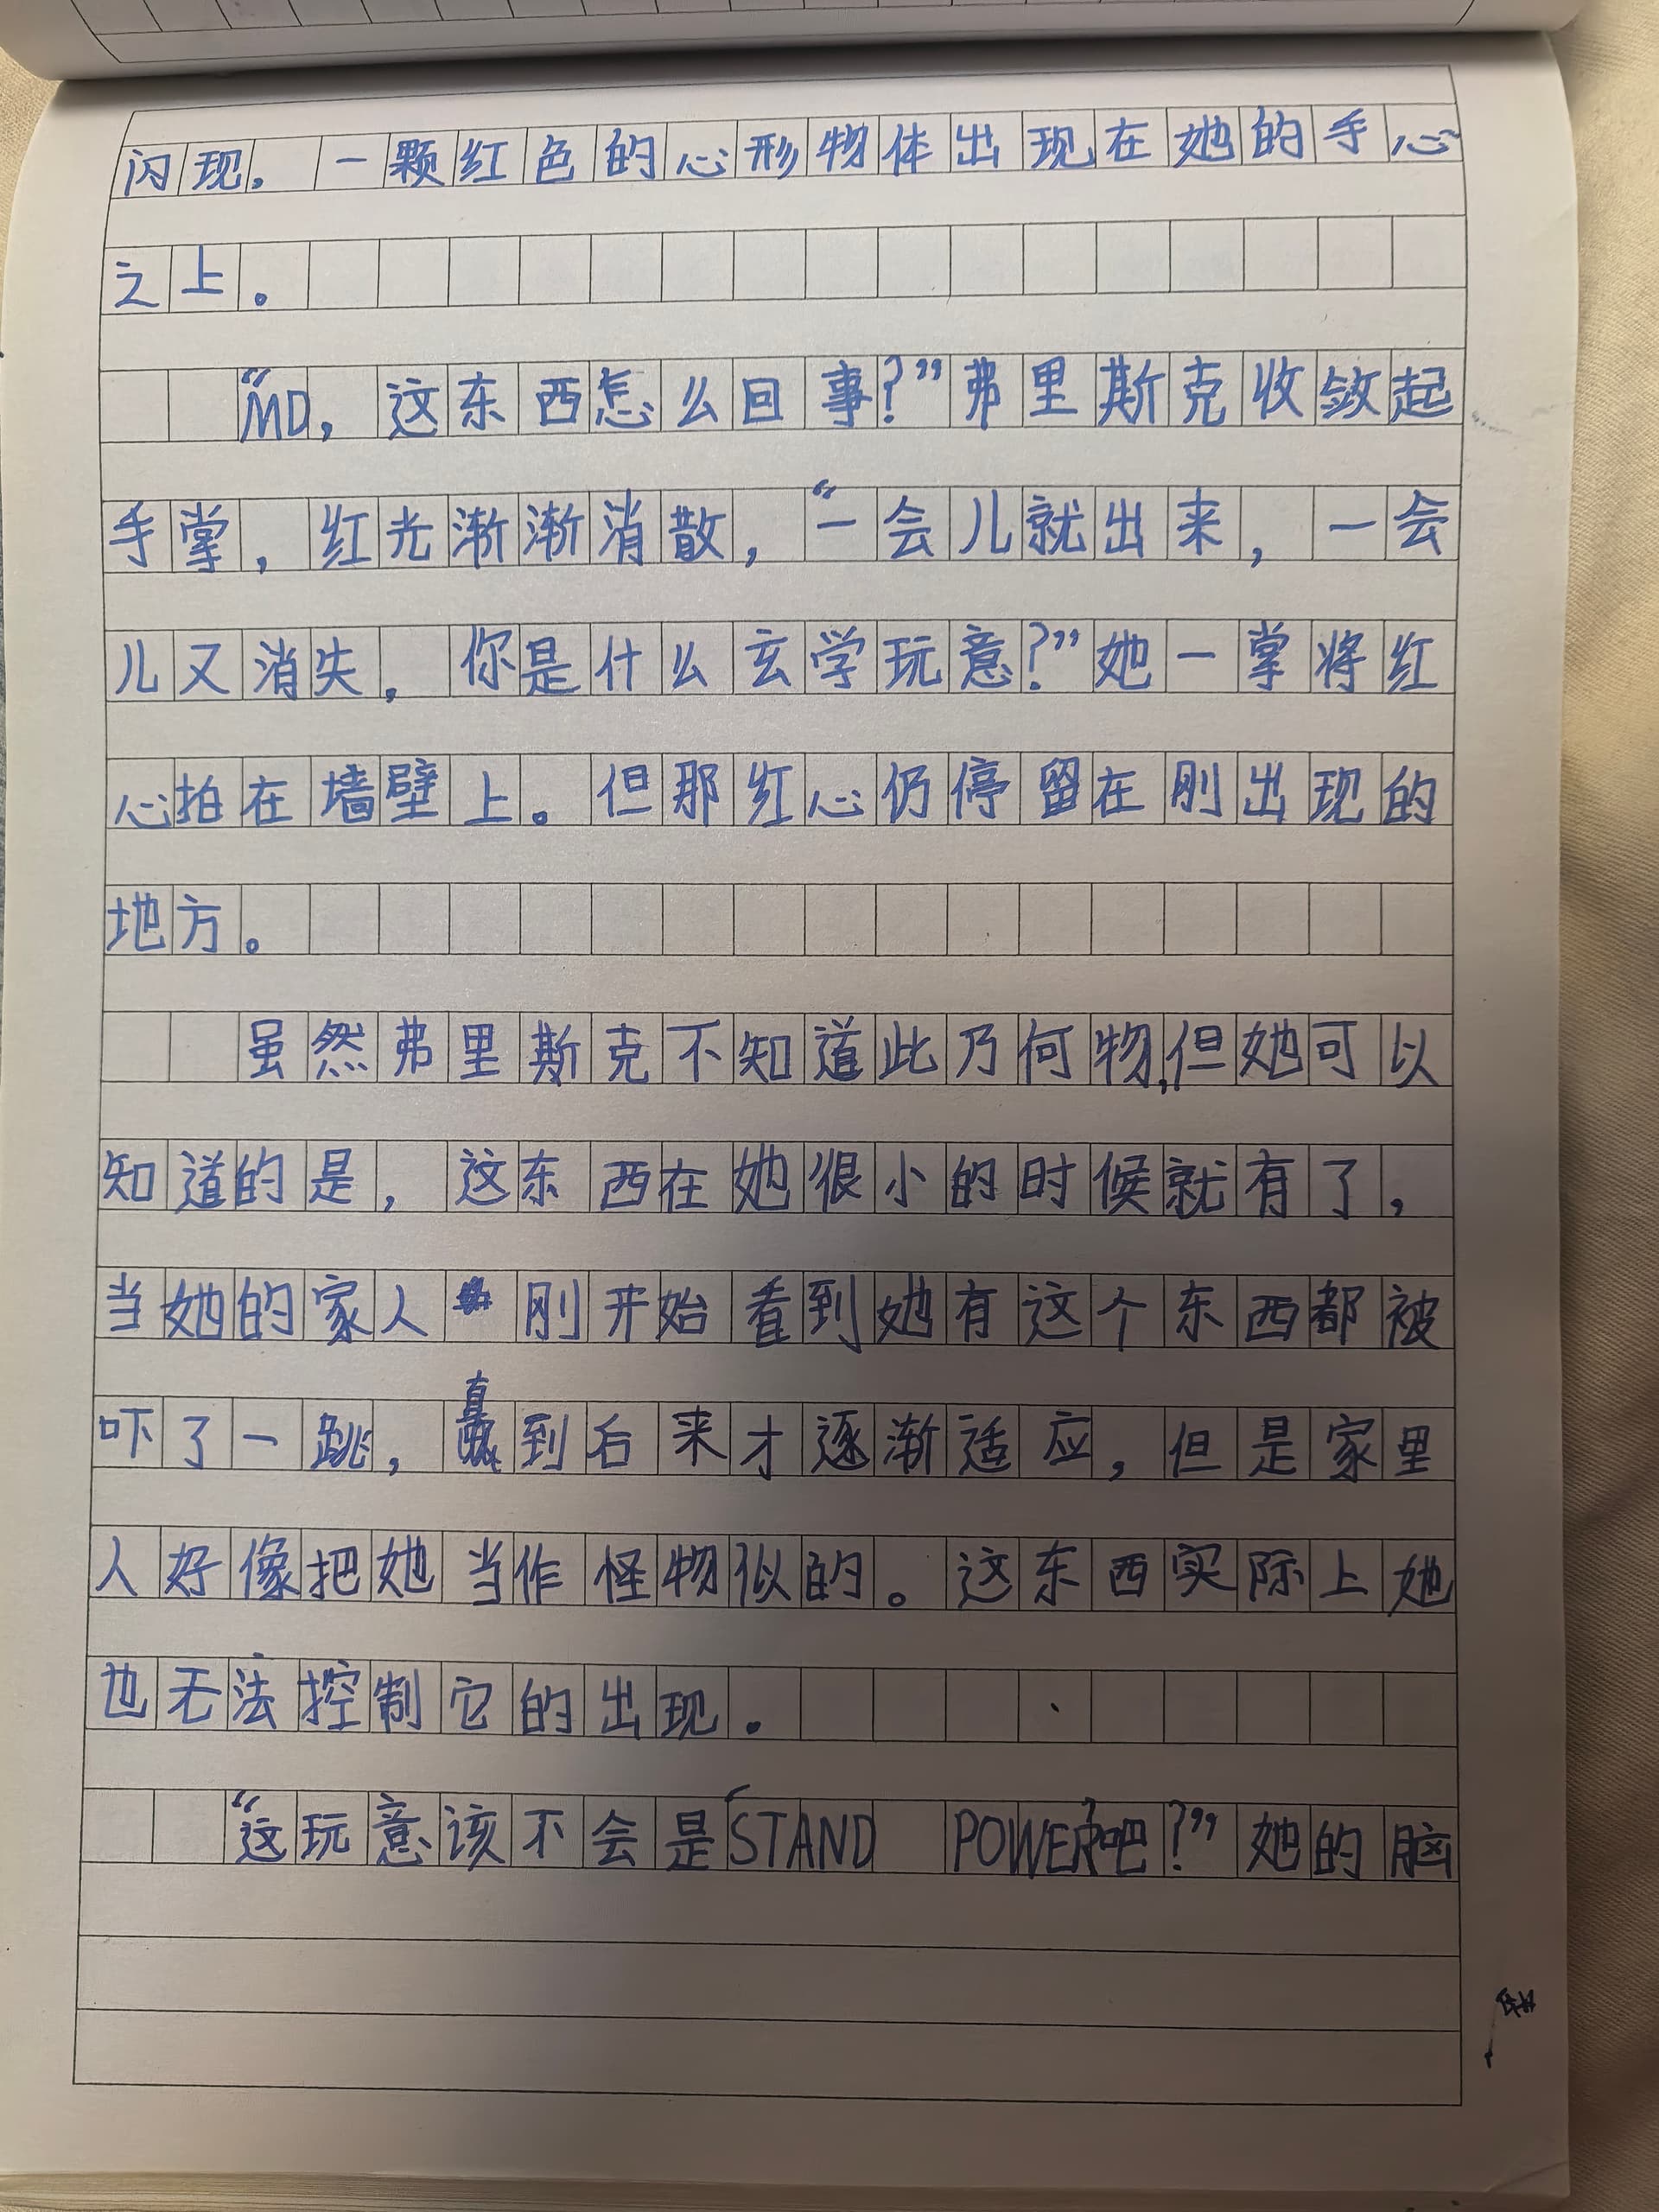 闪现。一颗红色的心形物体出现在她的手心
之上。
“MD，这东西怎么回事？”弗里斯克收敛起
手掌，红光渐渐消散，“一会儿就出来，一会
儿又消失，你是什么玄学玩意？”她一掌将红
心拍在墙壁上。但那红心仍停留在刚出现的
地方。
虽然弗里斯克不知道此乃何物，但她可以
知道的是，这东西在她很小的时候就有了，
当她的家人刚开始看到她有这个东西都被
吓了一跳，直到后来才逐渐适应，但是家里
人好像把她当作怪物似的。这东西实际上她
也无法控制它的出现.
“这玩意该不会是「STAND POWER」吧？”她的脑